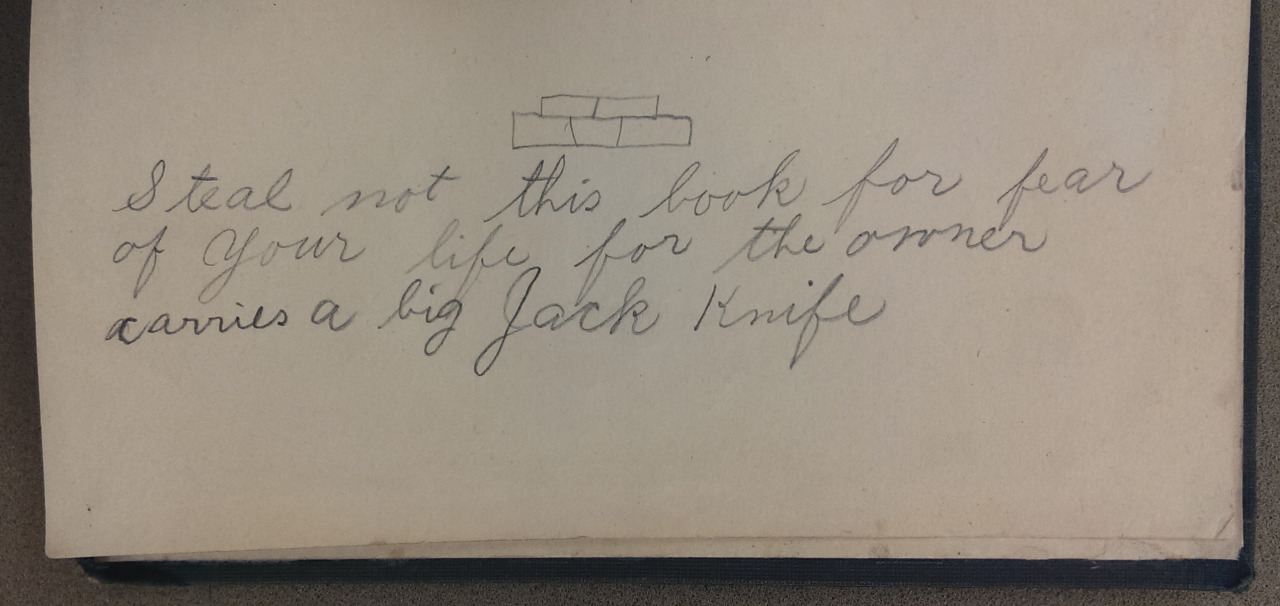 Steal not this book for fear
of Your life for the owner
carries a big Jack Knife